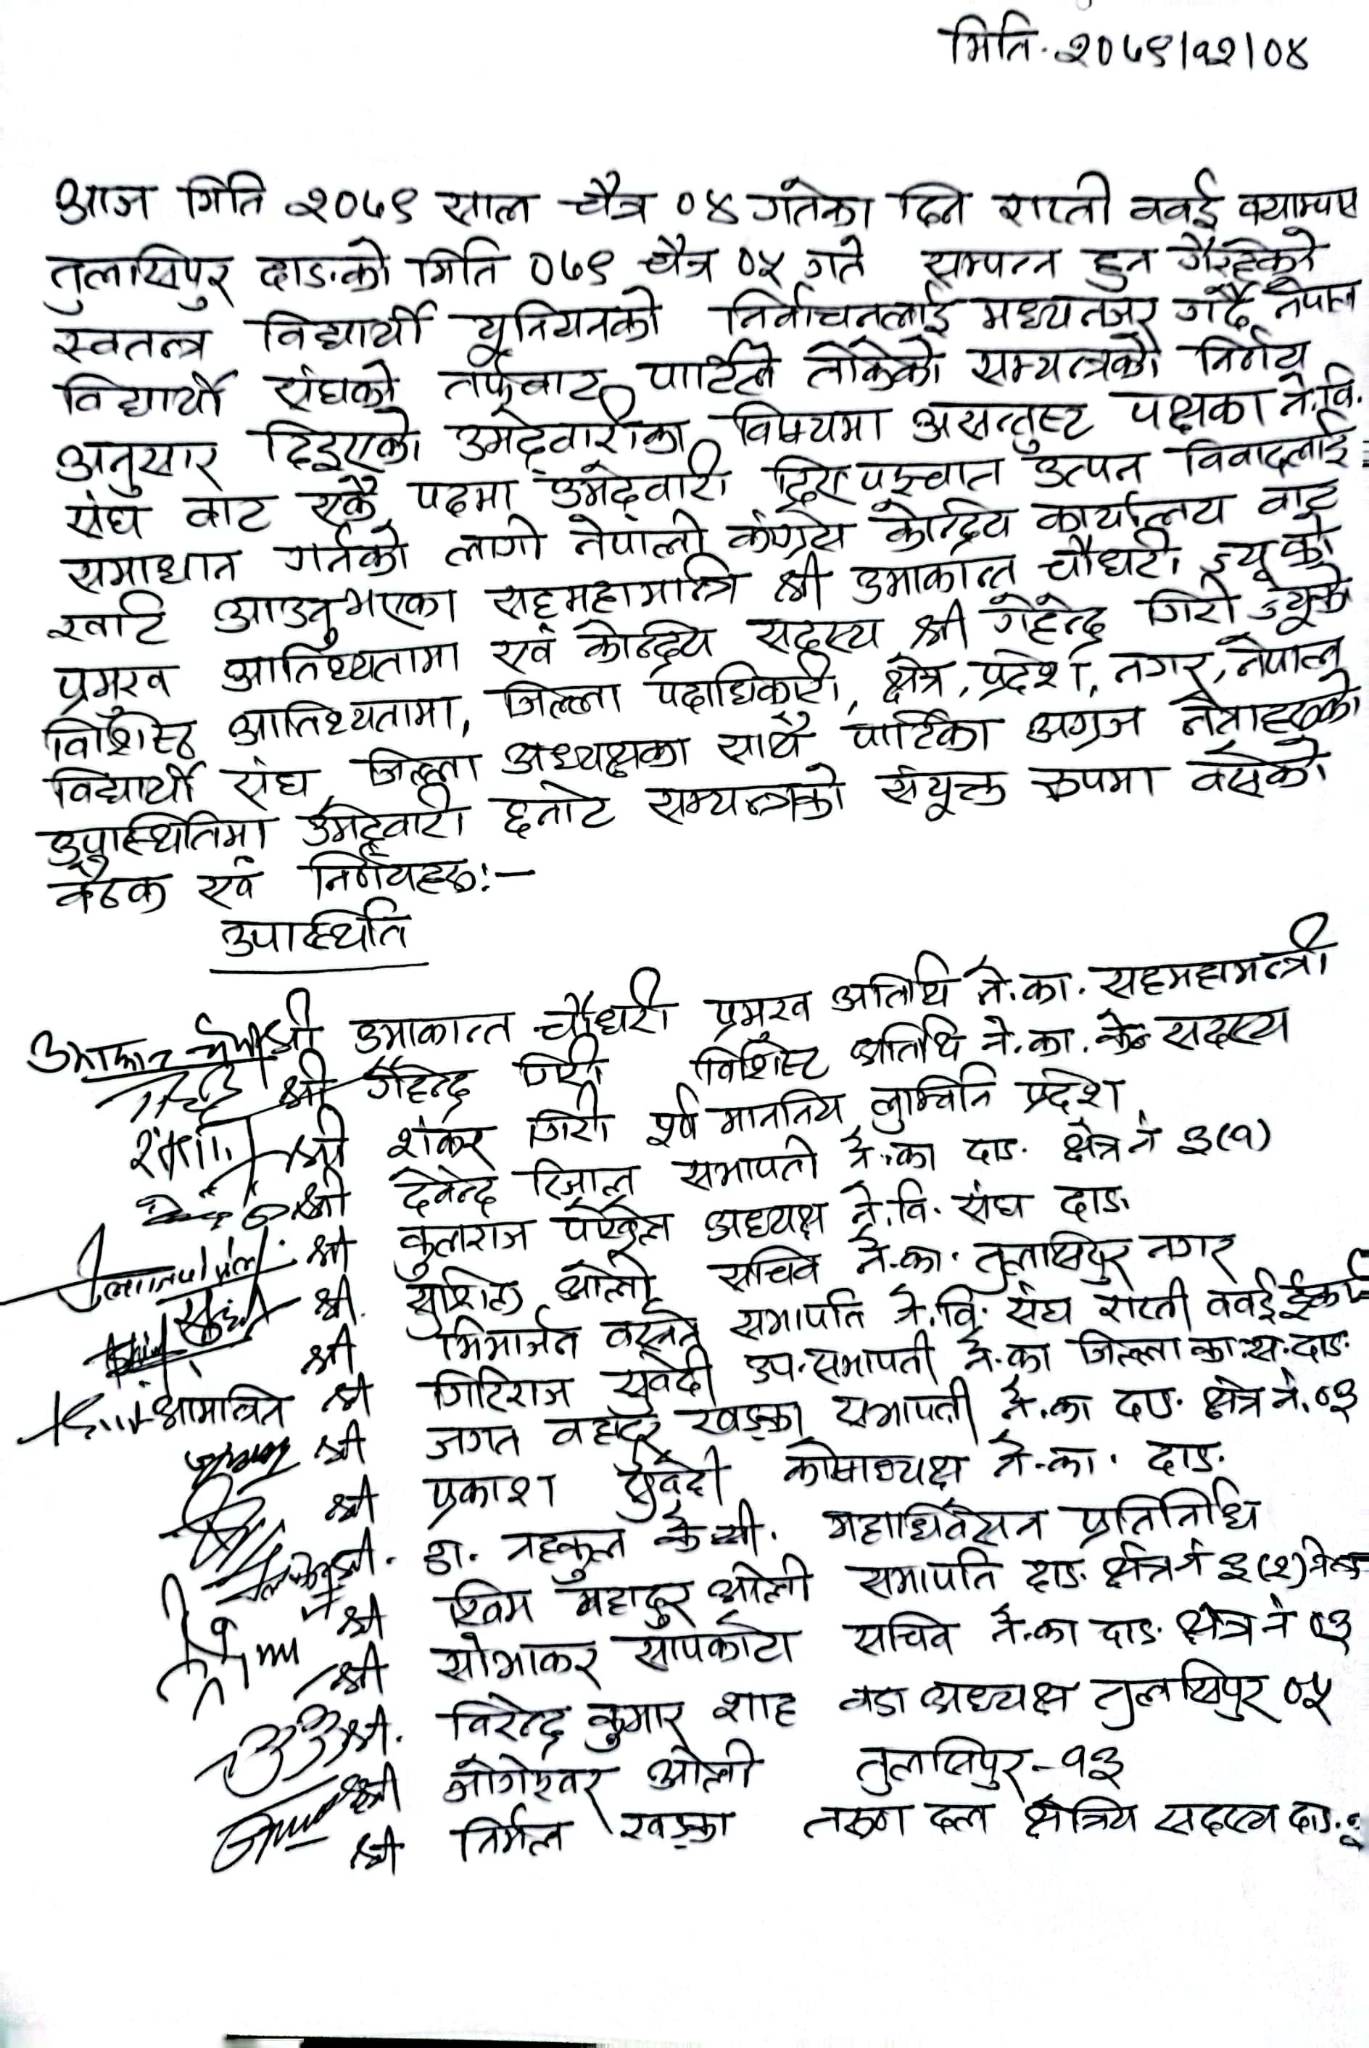 मिति. २०७९।१२।०४
आज मिति २०७९ साल चैत्र ०४ गतेका दिन राप्ती बबई क्याम्पस
तुलसिपुर दाङको मिति ०७९ चैत्र ०५ गते सम्पन्न हुन गैरहेको
स्वतन्त्र विद्यार्थी यूनियनको निर्वाचनलाई मध्यनजर गर्दै नेपाल
विद्यार्थी संघको तर्फबाट पार्टिले तोकेको सम्यन्त्रको निर्णय
अनुसार दिइएको उमेद्वारीका विषयमा असन्तुस्ट पक्षका ने.वि.
संघ बाट एकै पदमा उमेद्वारी दिए पश्चात उत्पन विवादलाई
समाधान गर्नको लागी नेपाली कंग्रेस केन्द्रिय कार्यालय बाट
खटि आउनुभएका सहमहामन्त्रि श्री उमाकान्त चौधरी ज्यूको
प्रमुख आतिथ्यतामा एवं केन्द्रिय सदस्य श्री गेहेन्द्र गिरी ज्यूको
विशिस्ट आतिथ्यतामा, जिल्ला पदाधिकारी, क्षेत्र, प्रदेश, नगर, नेपाल
विद्यार्थी संघ, जिल्ला अध्यक्षका साथै पार्टिका अग्रज नेताहरुको
उपुस्थितिमा उमेद्वारी छनोट सम्यन्त्रको संयूक्त रुपमा बसेको
बैठक एवं निर्णयहरु:-
उपस्थिति
श्री उमाकान्त चौधरी प्रमुख अतिथि ने.का. सहमहामन्त्री
श्री गेहेन्द्र गिरी विशिस्ट अतिथि ने.का. केन्द्र सदस्य
श्री शंकर गिरी पूर्व माननिय लुम्बिनि प्रदेश
श्री देवेन्द्र रिजाल सभापती ने.का दाङ. क्षेत्र नं ३(१)
श्री कुलराज पोख्रेल अध्यक्ष ने.वि. संघ दाङ
श्री. सुशिल ओली सचिव ने.का. तुलसिपुर नगर
श्री भिमार्जन बस्नेत सभापति ने.वि. संघ राप्ती बबई ईकाई
आमान्त्रित श्री गिरिराज सुवेदी उप-सभापती ने.का जिल्ला का.स. दाङ.
श्री जगत बहादुर खड्का सभापती ने.का दाङ. क्षेत्र नं. ०३
श्री प्रकाश सुवेदी कोषाध्यक्ष ने.का. दाङ.
श्री. डा. नहकुल के.सी. महाधिवेसन प्रतिनिधि
श्री खिम बहादुर ओली सभापति दाङ. क्षेत्र नं ३(२)
श्री सोभाकर सापकोटा सचिव ने.का दाङ. क्षेत्र नं ०३
श्री. विरेन्द्र कुमार शाह वडा अध्यक्ष तुलसिपुर ०५
श्री ओली तुलसिपुर-१३
श्री निर्मल खड्का तरुण दल क्षेत्रिय सदस्य दाङ.